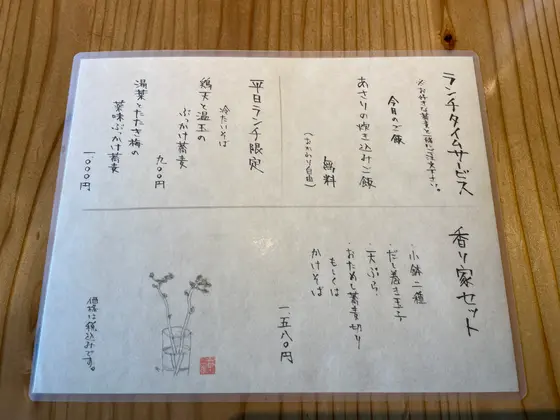 ランチタイムサービス
※お好きな蕎麦と一緒にご注文下さい。
今日のご飯
あさりの炊き込みご飯
無料
(おかわり自由)
平日ランチ限定
冷たいそば
鶏天と温玉の
ぶっかけ蕎麦
九〇〇円
湯葉とたたき梅の
薬味ぶっかけ蕎麦
一、〇〇〇円
香り家セット
・小鉢二種
・だし巻き玉子
・天ぷら
・おためし蕎麦切り
もしくは
かけそば
一、五八〇円
価格は税込みです。